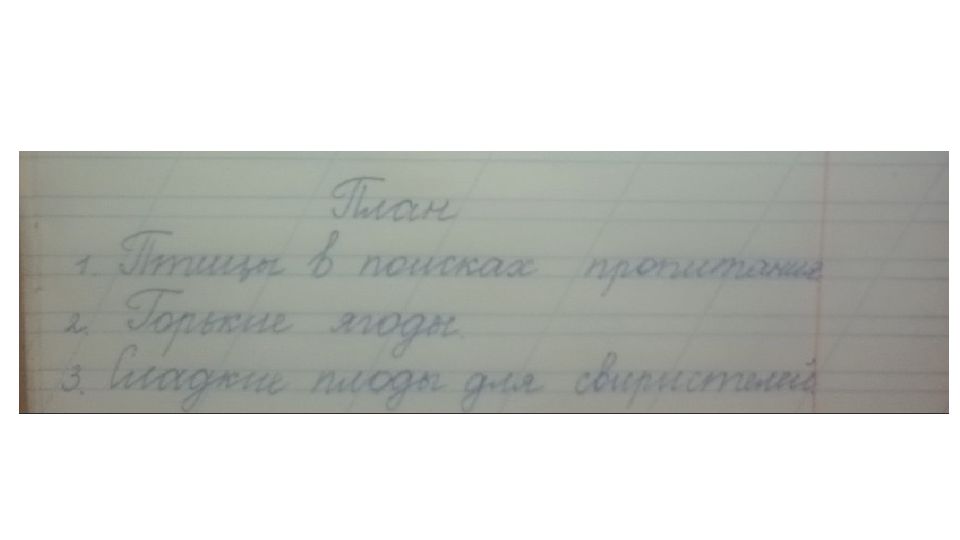 План
1. Птицы в поисках пропитания
2. Горькие ягоды.
3. Сладкие плоды для свиристелей